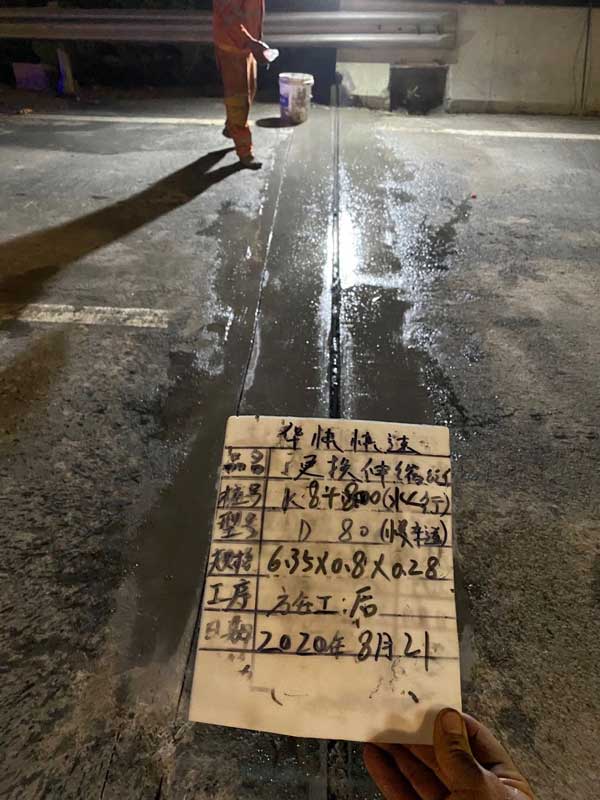 华快快速
品名 更换伸缩缝
桩号 K8+800(北行)
型号 D 80(慢车道)
规格 6.35×0.8×0.28
工序 施工:后
日期 2020年8月21